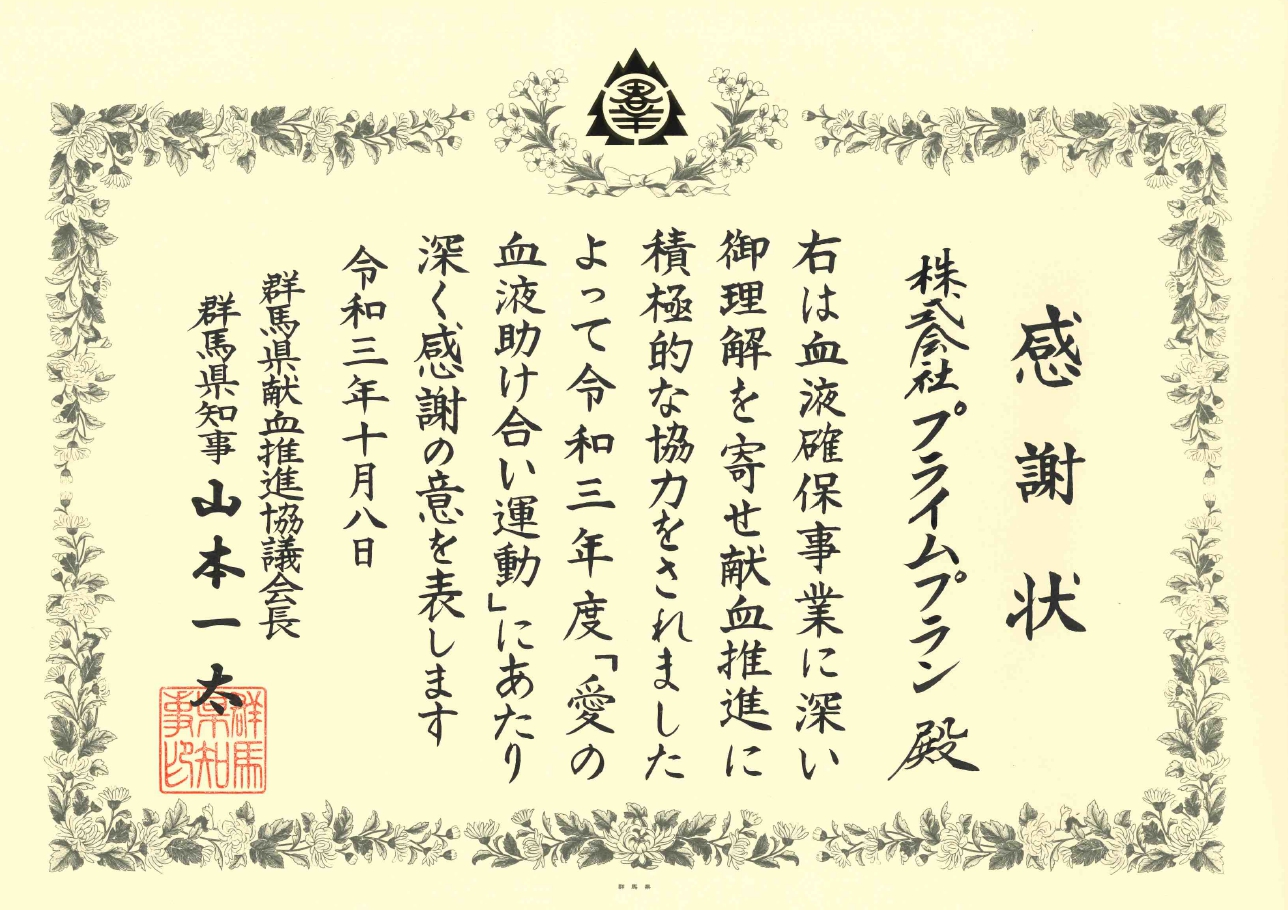 感謝状
株式会社プライムプラン 殿
右は血液確保事業に深い
御理解を寄せ献血推進に
積極的な協力をされました
よって令和三年度「愛の
血液助け合い運動」にあたり
深く感謝の意を表します
令和三年十月八日
群馬県献血推進協議会長
群馬県知事 山本一太
群馬
県知
事印
群馬県